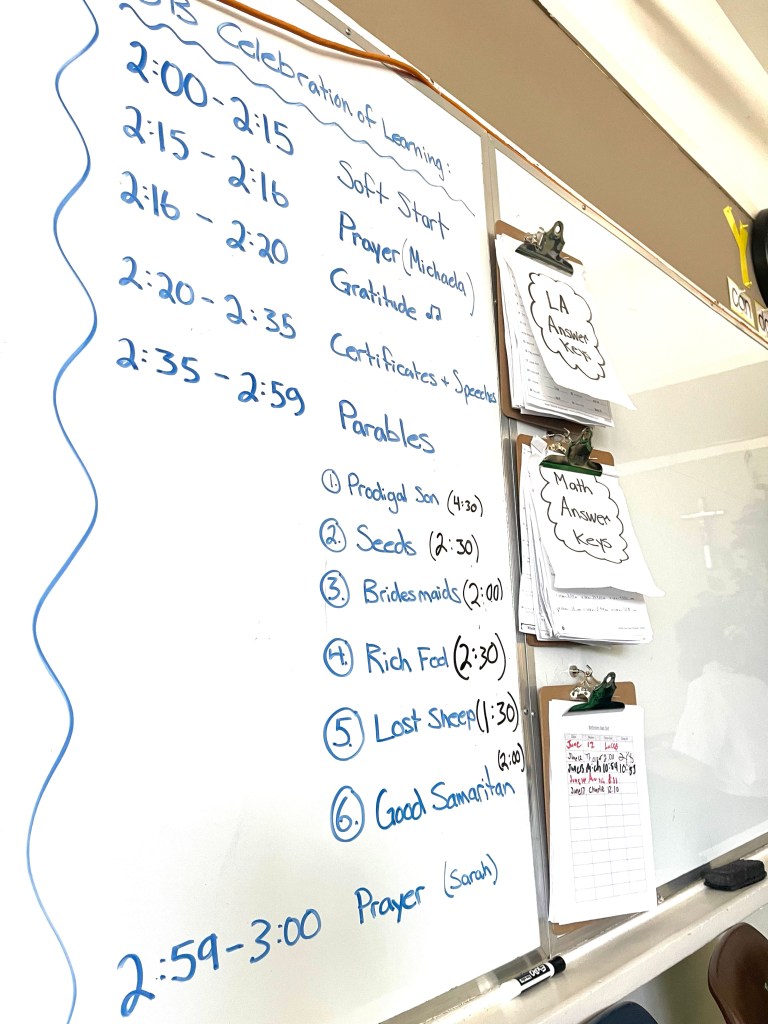 Celebration of Learning:
2:00-2:15 Soft Start
2:15 - 2:16 Prayer (Michaela)
2:16 - 2:20 Gratitude ♫
2:20-2:35 Certificates + Speeches
2:35 - 2:59 Parables
1. Prodigal Son (4:30)
2. Seeds (2:30)
3. Bridesmaids (2:00)
4. Rich Fool (2:30)
5. Lost Sheep (1:30)
6. Good Samaritan (2:00)
2:59-3:00 Prayer (Sarah)
LA
Answer
Keys
Math
Answer
Keys
June 12
Charlie 12:10
EXPO